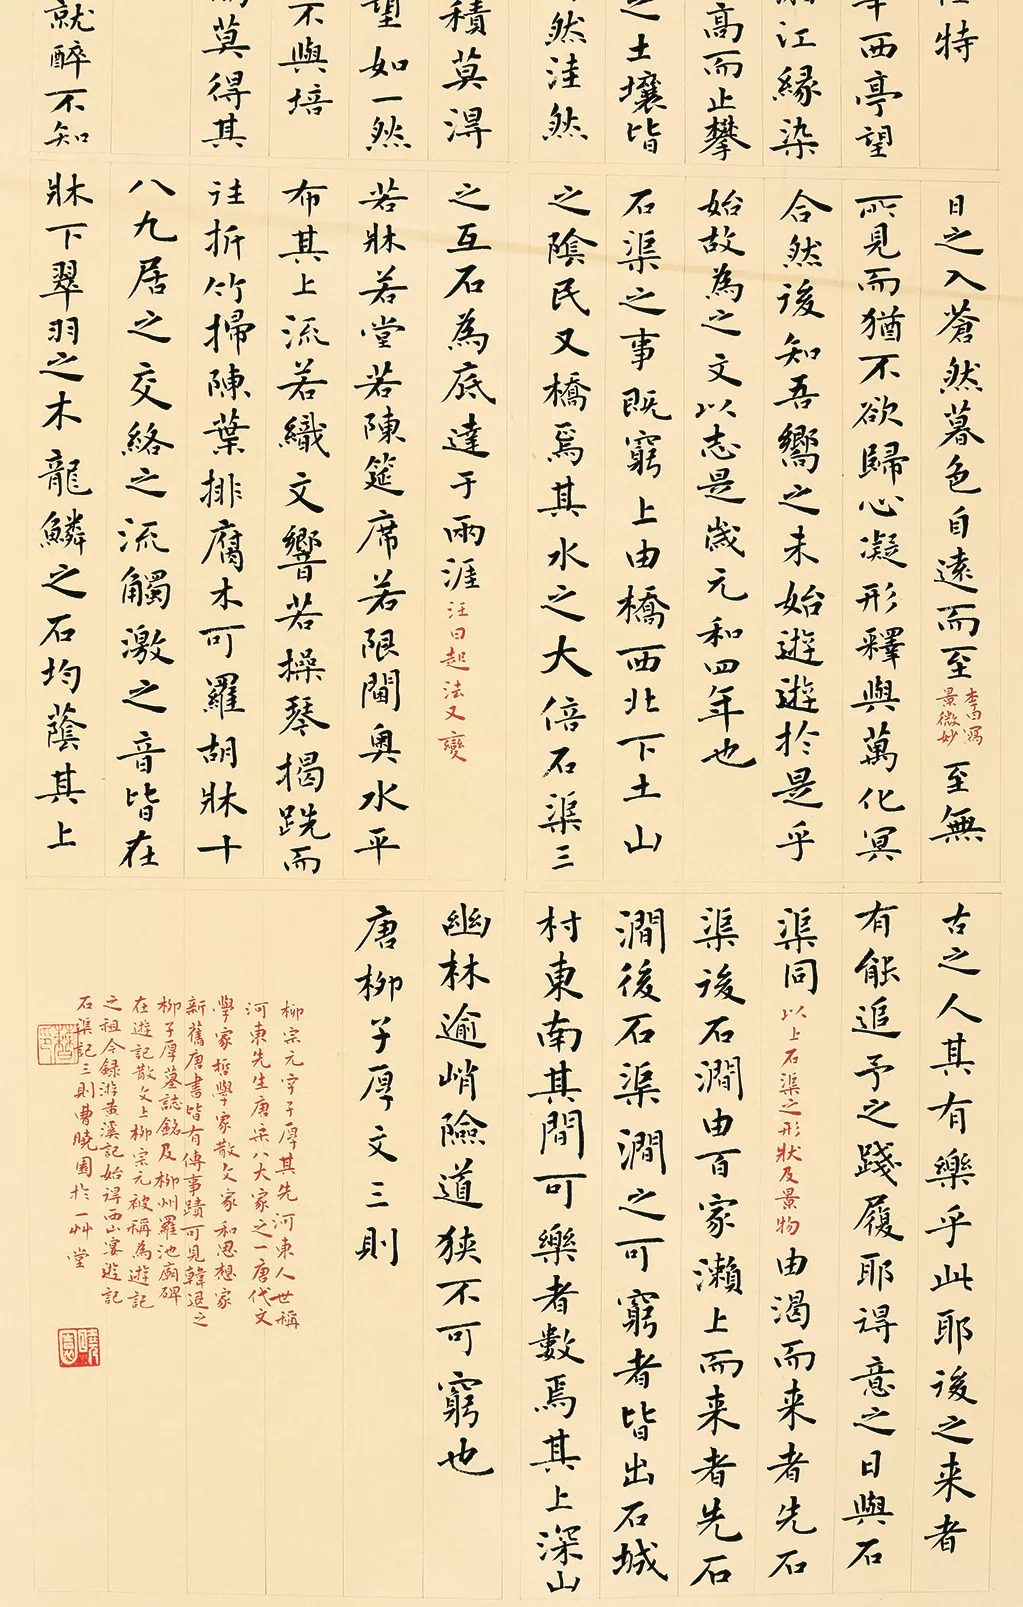 特
西亭望
江緣染
高而止攀
之土壤皆
然洼然
積莫得
望如一然
不與培
莫得其
就醉不知
日之入蒼然暮色自遠而至李曰寫景微妙至無
所見而猶不欲歸心凝形釋與萬化冥
合然後知吾嚮之未始遊遊於是乎
始故為之文以志是歲元和四年也
石渠之事既窮上由橋西北下土山
之陰民又橋焉其水之大倍石渠三
之互石為底達于兩涯汪曰起法又變
若牀若堂若陳筵席若限閫奧水平
布其上流若織文響若操琴揭跣而
往折竹掃陳葉排腐木可羅胡牀十
八九居之交絡之流觸激之音皆在
牀下翠羽之木龍鱗之石均蔭其上
古之人其有樂乎此耶後之来者
有能追予之踐履耶得意之日與石
渠同以上石渠之形狀及景物由渴而来者先石
渠後石澗由百家瀨上而来者先石
澗後石渠澗之可窮者皆出石城
村東南其間可樂者數焉其上深山
幽林逾峭險道狹不可窮也
唐柳子厚文三則
柳宗元字子厚其先河東人世稱
河東先生唐宋八大家之一唐代文
學家哲學家散文家和思想家
新舊唐書皆有傳事蹟可見韓退之
柳子厚墓誌銘及柳州羅池廟碑
在遊記散文上柳宗元被稱為遊記
之祖今録游黃溪記始得西山宴遊記
石渠記三則曹曉園於一艸堂